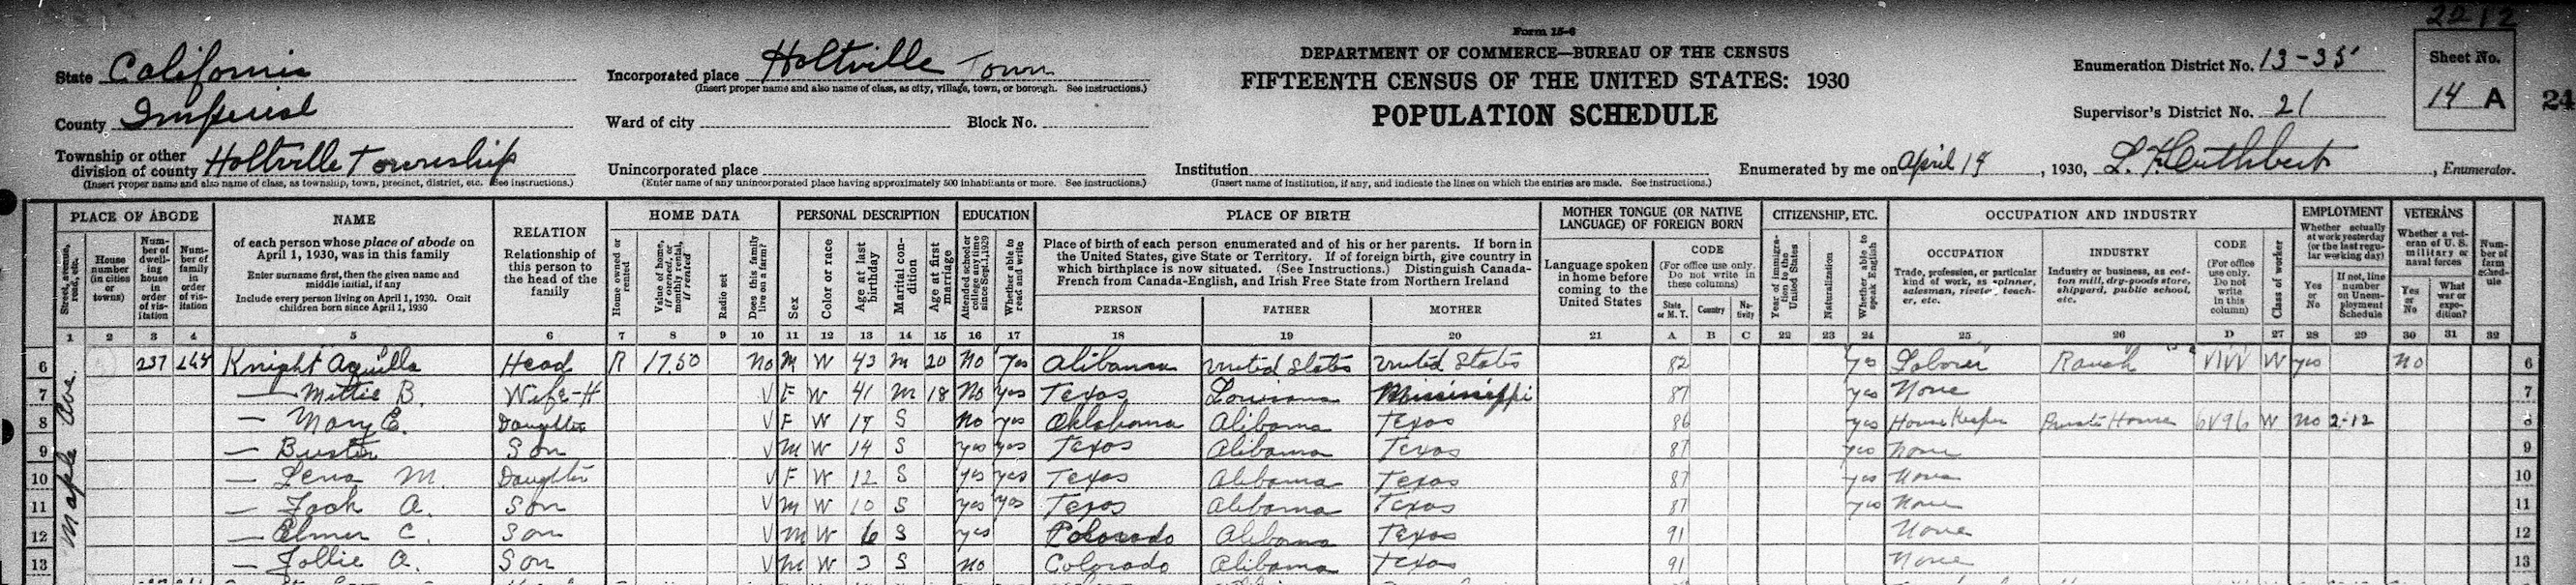 2212
Form 15-6
DEPARTMENT OF COMMERCE—BUREAU OF THE CENSUS
FIFTEENTH CENSUS OF THE UNITED STATES: 1930
POPULATION SCHEDULE
State California
County Imperial
Township or other division of county Holtville Township
(Insert proper name and also name of class, as township, town, precinct, district, etc. See instructions.)
Incorporated place Holtville Town
(Insert proper name and also name of class, as city, village, town, or borough. See instructions.)
Ward of city Block No.
Unincorporated place
(Enter name of any unincorporated place having approximately 500 inhabitants or more. See instructions.)
Institution
(Insert name of institution, if any, and indicate the lines on which the entries are made. See instructions.)
Enumeration District No. 13-35
Supervisor's District No. 21
Sheet No.
14 A
24
Enumerated by me on April 14, 1930, L. F. Cuthbert, Enumerator.
PLACE OF ABODE
Street, avenue, road, etc.
House number (in cities or towns)
Number of dwelling house in order of visitation
Number of family in order of visitation
NAME
of each person whose place of abode on April 1, 1930, was in this family
Enter surname first, then the given name and middle initial, if any
Include every person living on April 1, 1930. Omit children born since April 1, 1930
RELATION
Relationship of this person to the head of the family
HOME DATA
Home owned or rented
Value of home, if owned, or monthly rental, if rented
Radio set
Does this family live on a farm?
PERSONAL DESCRIPTION
Sex
Color or race
Age at last birthday
Marital condition
Age at first marriage
EDUCATION
Attended school or college any time since Sept. 1, 1929
Whether able to read and write
PLACE OF BIRTH
Place of birth of each person enumerated and of his or her parents. If born in the United States, give State or Territory. If of foreign birth, give country in which birthplace is now situated. (See Instructions.) Distinguish Canada-French from Canada-English, and Irish Free State from Northern Ireland
PERSON FATHER MOTHER
MOTHER TONGUE (OR NATIVE LANGUAGE) OF FOREIGN BORN
Language spoken in home before coming to the United States
CODE
(For office use only. Do not write in these columns)
State or M. T. Country Nativity
CITIZENSHIP, ETC.
Year of immigration to the United States
Naturalization
Whether able to speak English
OCCUPATION AND INDUSTRY
OCCUPATION
Trade, profession, or particular kind of work, as spinner, salesman, riveter, teacher, etc.
INDUSTRY
Industry or business, as cotton mill, dry-goods store, shipyard, public school, etc.
CODE
(For office use only. Do not write in this column)
Class of worker
EMPLOYMENT
Whether actually at work yesterday (or the last regular working day)
Yes or No
If not, line number on Unemployment Schedule
VETERANS
Whether a veteran of U. S. military or naval forces
Yes or No
What war or expedition?
Number of farm schedule
1 2 3 4 5 6 7 8 9 10 11 12 13 14 15 16 17 18 19 20 21 A B C 22 23 24 25 26 D 27 28 29 30 31 32
Maple Ave.
6 237 245 Knight Aquilla Head R 17.50 No M W 43 M 20 No Yes Alibama United States United States 82 yes Laborer Ranch VIVV W yes No 6
7 — Mittie B. Wife-H V F W 41 M 18 No yes Texas Louisiana Mississippi 87 yes None 7
8 — Mary E. Daughter V F W 17 S No yes Oklahoma Alibama Texas 86 yes House Keeper Private Home 6V96 W No 2-12 8
9 — Buster Son V M W 14 S yes yes Texas Alibama Texas 87 yes None 9
10 — Lena M. Daughter V F W 12 S yes yes Texas Alibama Texas 87 yes None 10
11 — Jack A. Son V M W 10 S yes yes Texas Alibama Texas 87 yes None 11
12 — Elmer C. Son V M W 6 S yes Colorado Alibama Texas 91 None 12
13 — Jollie A. Son V M W 3 S No Colorado Alibama Texas 91 None 13